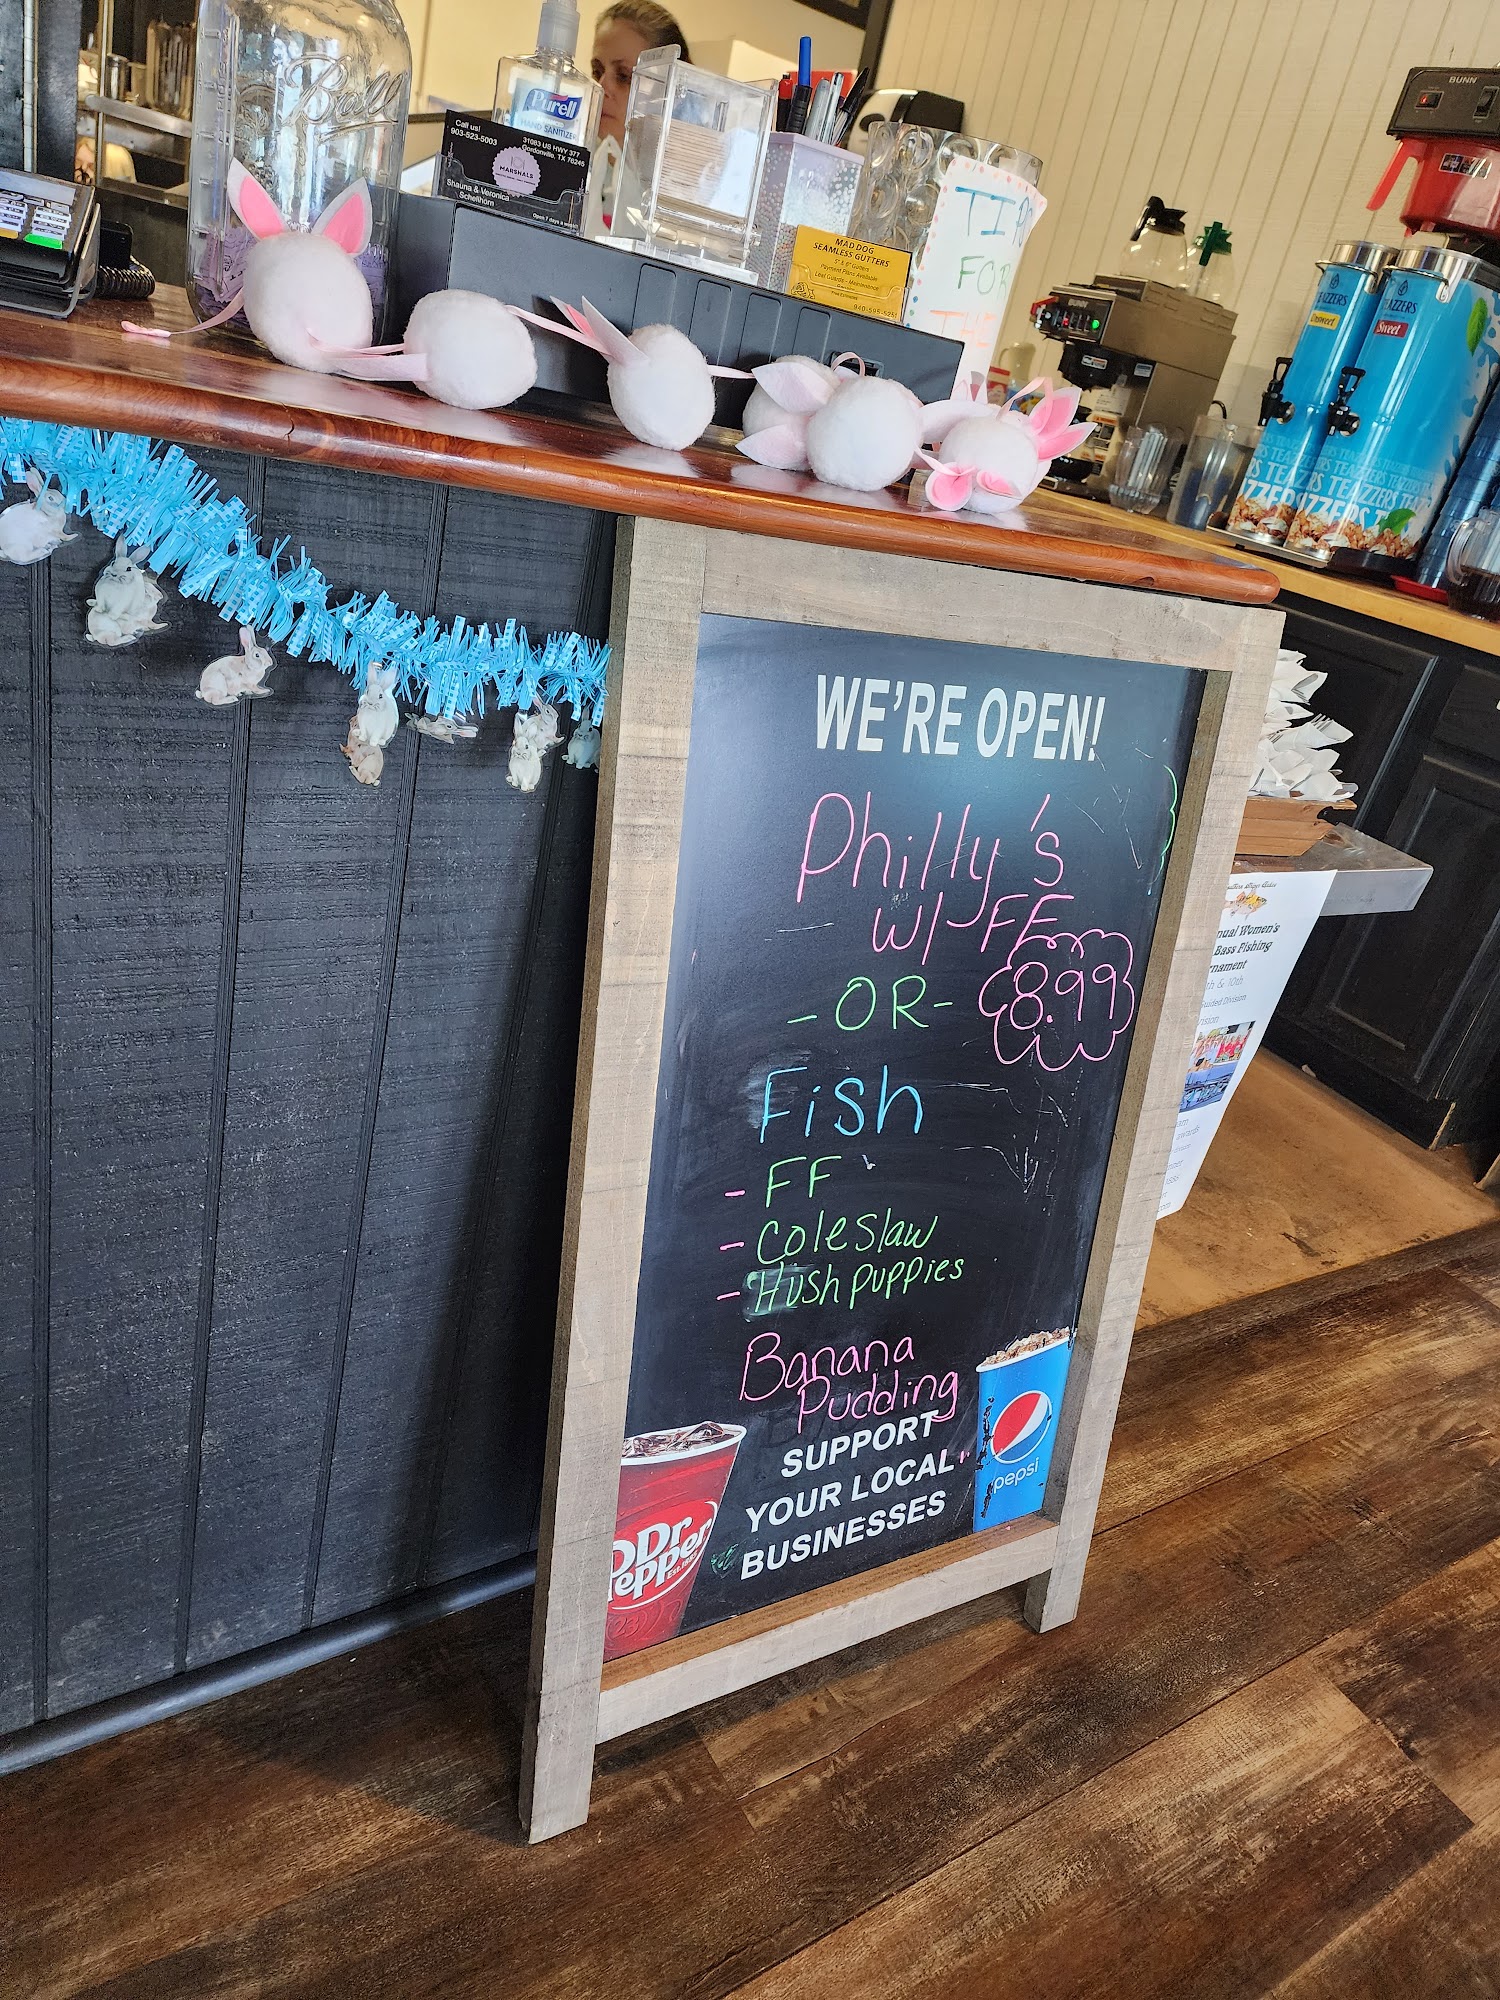 Ball
Purell
HAND SANITIZER
Call us!
903-523-5003
31093 US HWY 377
Gordonville, TX 76245
MARSHALS
Shauna & Veronica
Schellhorn
Open 7 days a week
MAD DOG
SEAMLESS GUTTERS
5" 6" Gutters
Payment Plans Available
Leaf Guards - Maintenance
Free Estimates
940-595-5251
TIPS
FOR
THE
BUNN
BUNN
TEAZZERS
Unsweet
TEAZZERS
Sweet
WE'RE OPEN!
Philly's
w/ FF
8.99
-OR-
Fish
- FF
- Coleslaw
- Hushpuppies
Banana
Pudding
SUPPORT
YOUR LOCAL
BUSINESSES
Dr
epper
23
pepsi
nual Women's
Bass Fishing
rnament
th & 10th
uided Division